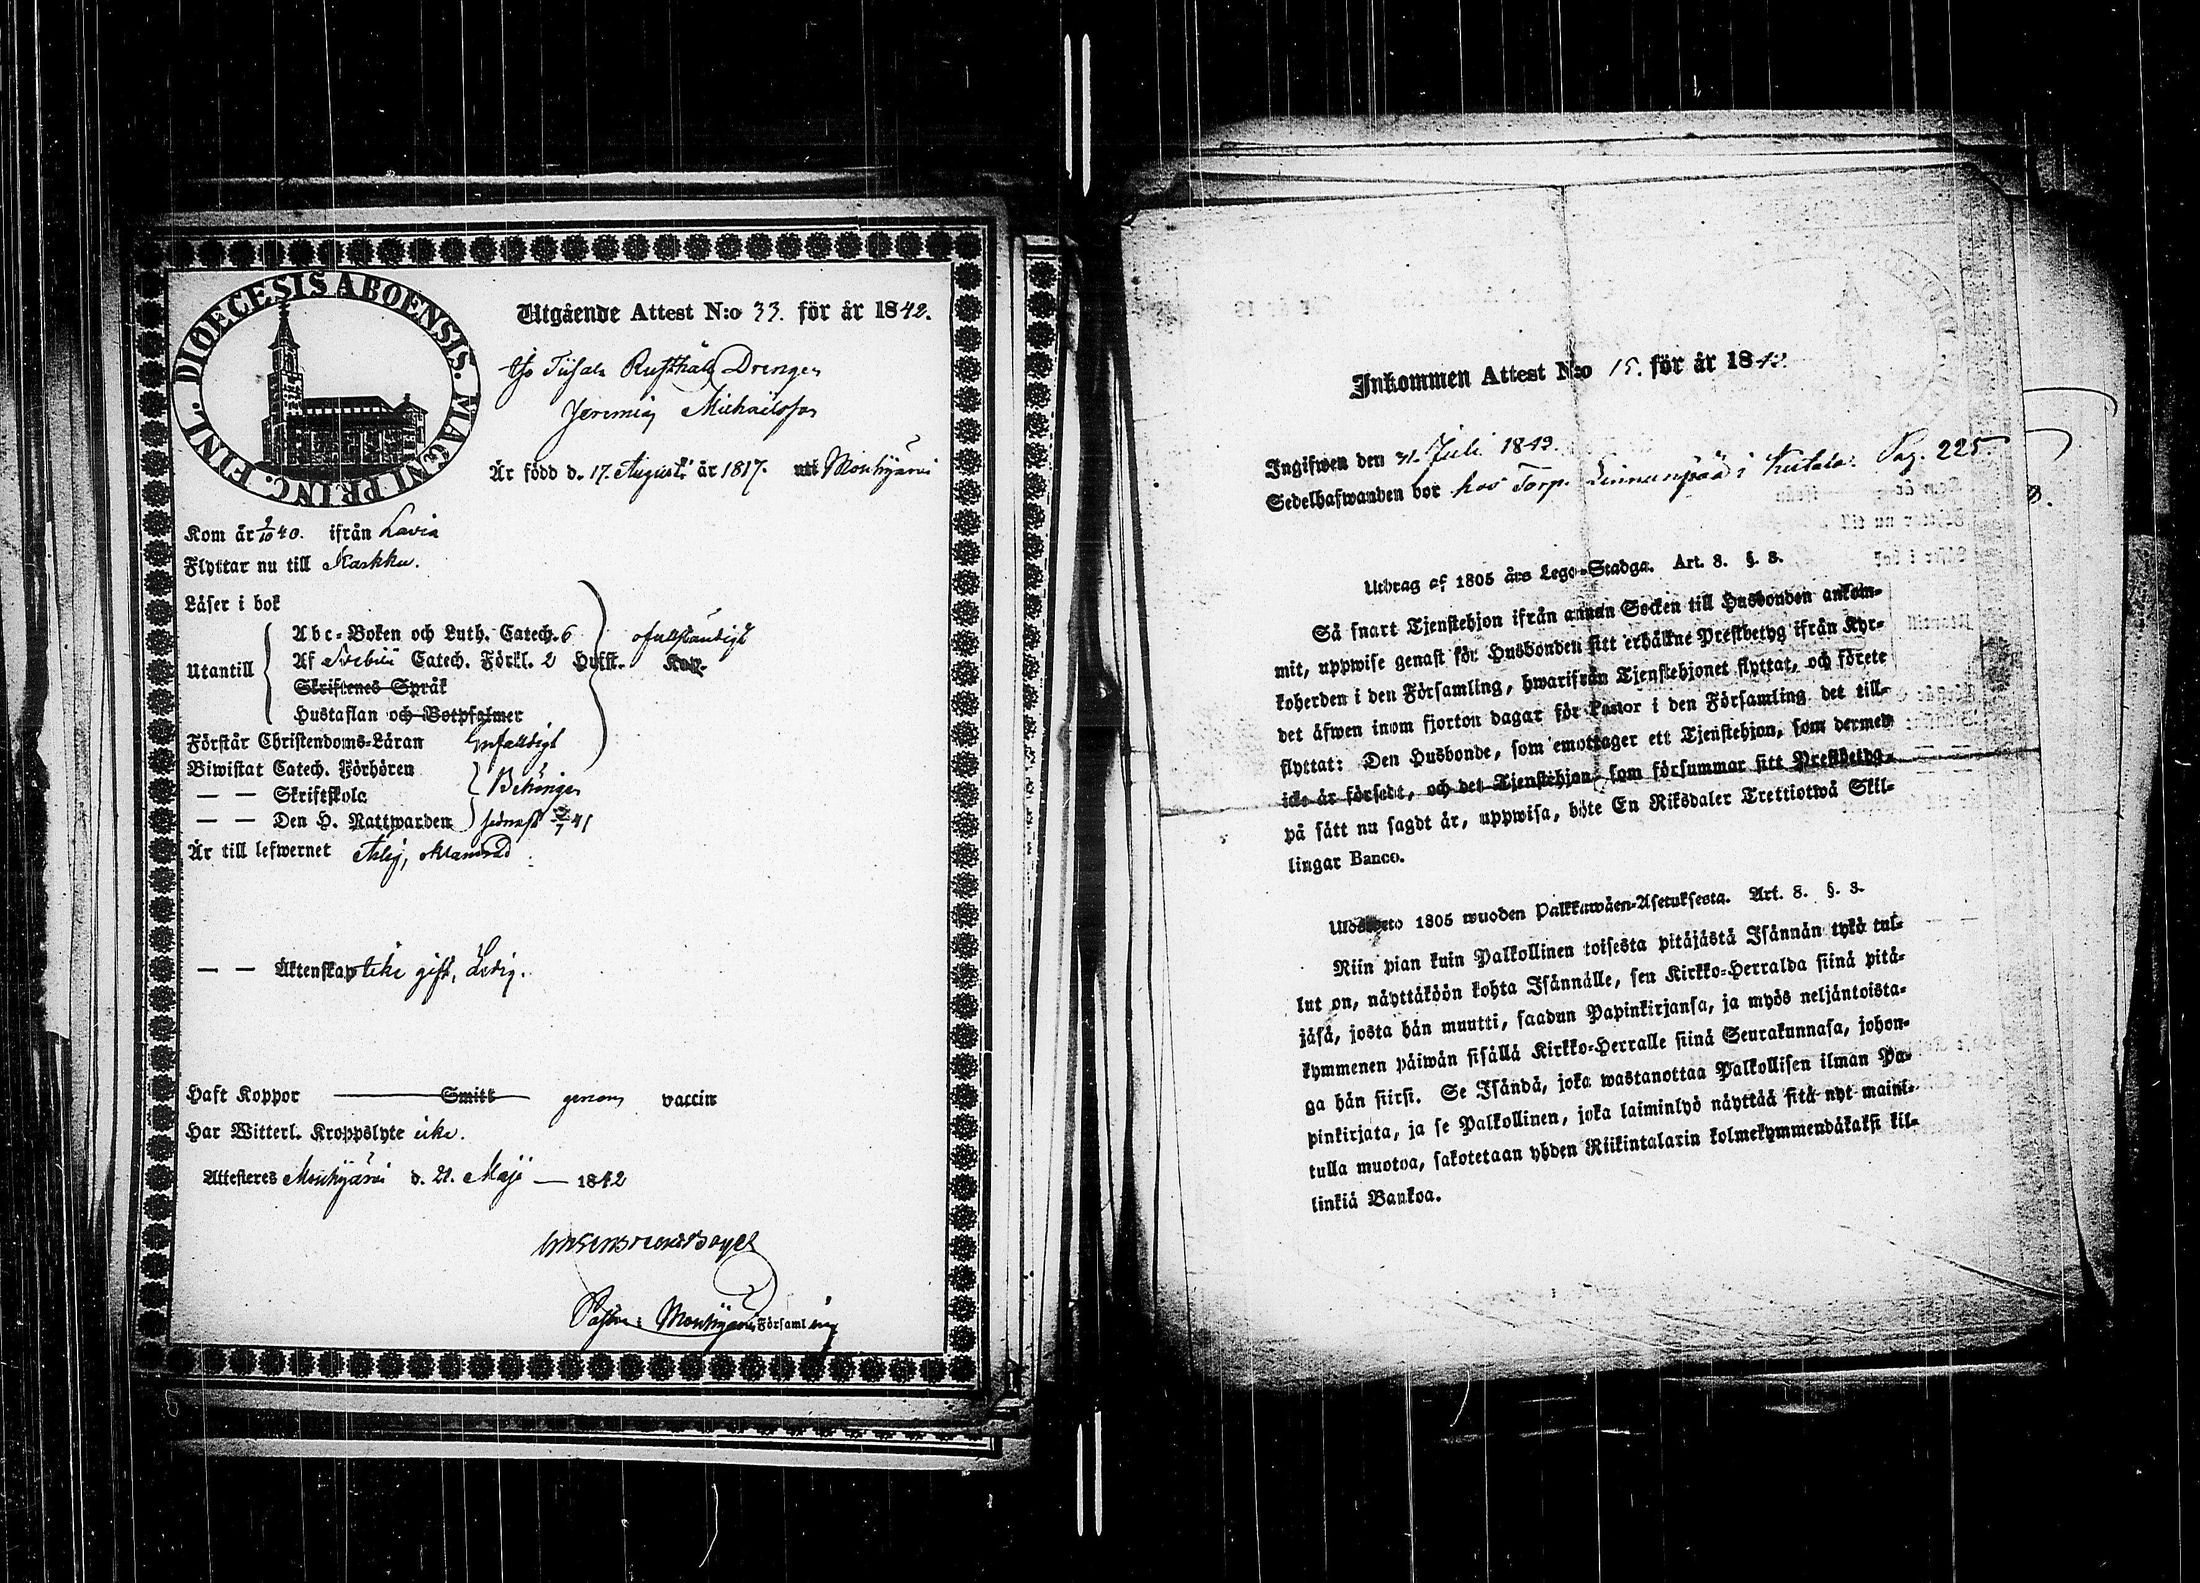 DIOECESIS ABOENSIS. MAGNI PRINC. FINL.
Utgående Attest N:o 33. för år 1842.
Rusthåls Drengen
Jeremias Michaelsson
Är född d. 17. Augusti år 1817. uti Mouhijärvi
Kom år 9/10 40. ifrån Lavia
Flyttar nu till Karkku.
Läser i bok
Utantill
Abc-Boken och Luth. Catech. 6
Af Svebilii Catech. Förkl. 2 Hufst.
Skriftenes Språk
Hustaflan och Botpsalmer
ofullständigt
Förstår Christendoms-Läran Enfaldigt
Biwistat Catech. Förhören
— — Skriftskola
— — Den H. Nattwarden
Behörigen
sednast 41
Är till lefwernet Ärlig,
— — Äktenskap icke gift, Ledig.
Haft Koppor Smitt genom vaccin
Har Witterl. Kroppslyte icke.
Attesteres Mouhijärvi d. 21. Maji — 1842
Pastor i Mouhijärvi Församling
Inkommen Attest N:o 15. för år 1842.
Ingifwen den 31. Juli 1842.
Sedelhafwanden bor hos Torp. Linnunpää i Kutala. Pag. 225.
Utdrag af 1805 års Lego-Stadga. Art. 8. §. 3.
Så snart Tjenstehjon ifrån annan Socken till Husbonden ankom-
mit, uppwise genast för Husbonden sitt erhållne Prestbetyg ifrån Kyr-
koherden i den Församling, hwarifrån Tjenstehjonet flyttat, och förete
det äfwen inom fjorton dagar för Pastor i den Församling det till-
flyttat: Den Husbonde, som emottager ett Tjenstehjon, som dermed
icke är försedt, och det Tjenstehjon, som försummar sitt Prestbetyg,
på sätt nu sagdt är, uppwisa, böte En Riksdaler Trettiotwå Skil-
lingar Banco.
Ulosweto 1805 wuoden Palkkawäen-Asetuksesta. Art. 8. §. 3.
Niin pian kuin Palkollinen toisesta pitäjästä Isännän tykö tul-
lut on, näyttäköön kohta Isännälle, sen Kirkko-Herralda siinä pitä-
jäsä, josta hän muutti, saadun Papinkirjansa, ja myös neljäntoista-
kymmenen päiwän sisällä Kirkko-Herralle siinä Seurakunnasa, johon-
ga hän siirsi. Se Isändä, joka wastanottaa Palkollisen ilman Pa-
pinkirjata, ja se Palkollinen, joka laiminlyö näyttää sitä nyt maini-
tulla muotoa, sakotetaan yhden Riikintalarin kolmekymmendäkaksi kil-
linkiä Bankoa.